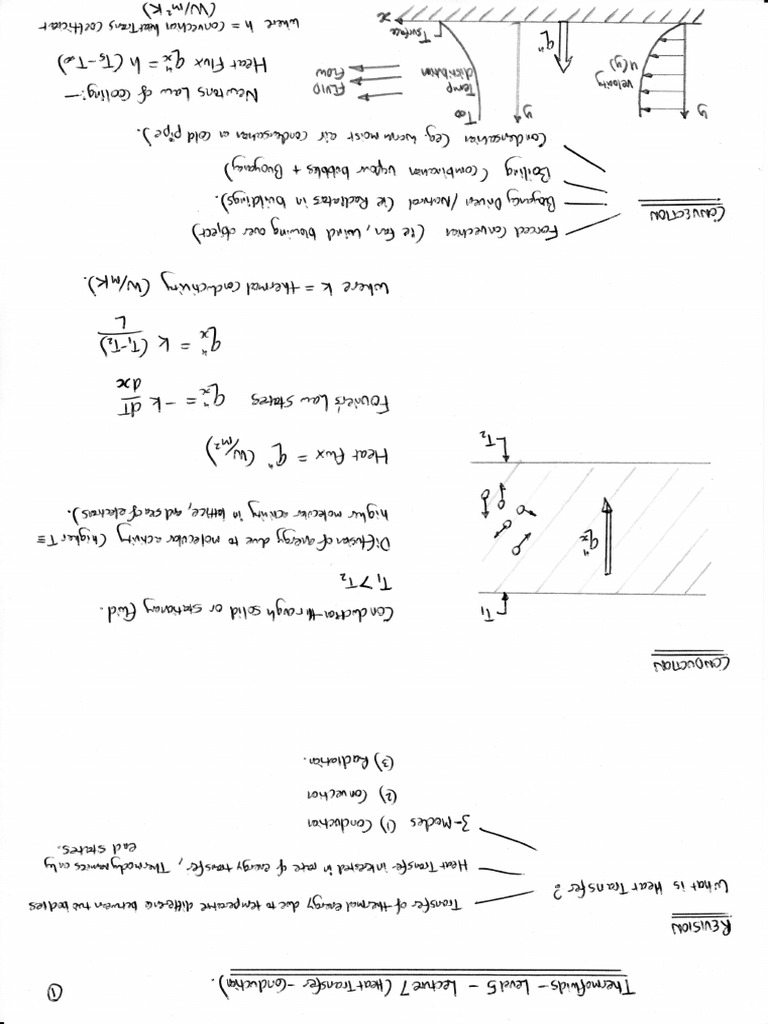 Thermofluids - Level 5 - Lecture 7 (Heat Transfer - Conduction).
①
REVISION
What is Heat Transfer?
Transfer of thermal energy due to temperature difference between two bodies
Heat Transfer interested in rate of energy transfer, Thermodynamics only
end states.
3-Modes (1) Conduction
(2) Convection
(3) Radiation.
CONDUCTION
T₁
qₓ"
T₂
Conduction through solid or stationary fluid.
T₁ > T₂
Diffusion of energy due to molecular activity (higher T ≡
higher molecular activity in lattice, and sea of electrons).
Heat flux = q" (W/m²)
Fourier's Law states qₓ" = -k dT/dx
qₓ" = k (T₁-T₂)/L
where k = thermal conductivity (W/mK).
CONVECTION
Forced Convection (ie fan, wind blowing over object)
Boyancy Driven / Natural (ie Radiators in buildings).
Boiling (Combination vapour bubbles + Buoyancy)
Condensation (eg. warm moist air condensation on cold pipe).
y
Velocity
u(y)
q"
y
T∞
Temp
distribution
Tsurface
x
FLUID
FLOW
Newtons Law of Cooling:-
Heat Flux qₓ" = h (Ts - T∞)
where h = Convection heat Trans Coefficient
(W/m²K)